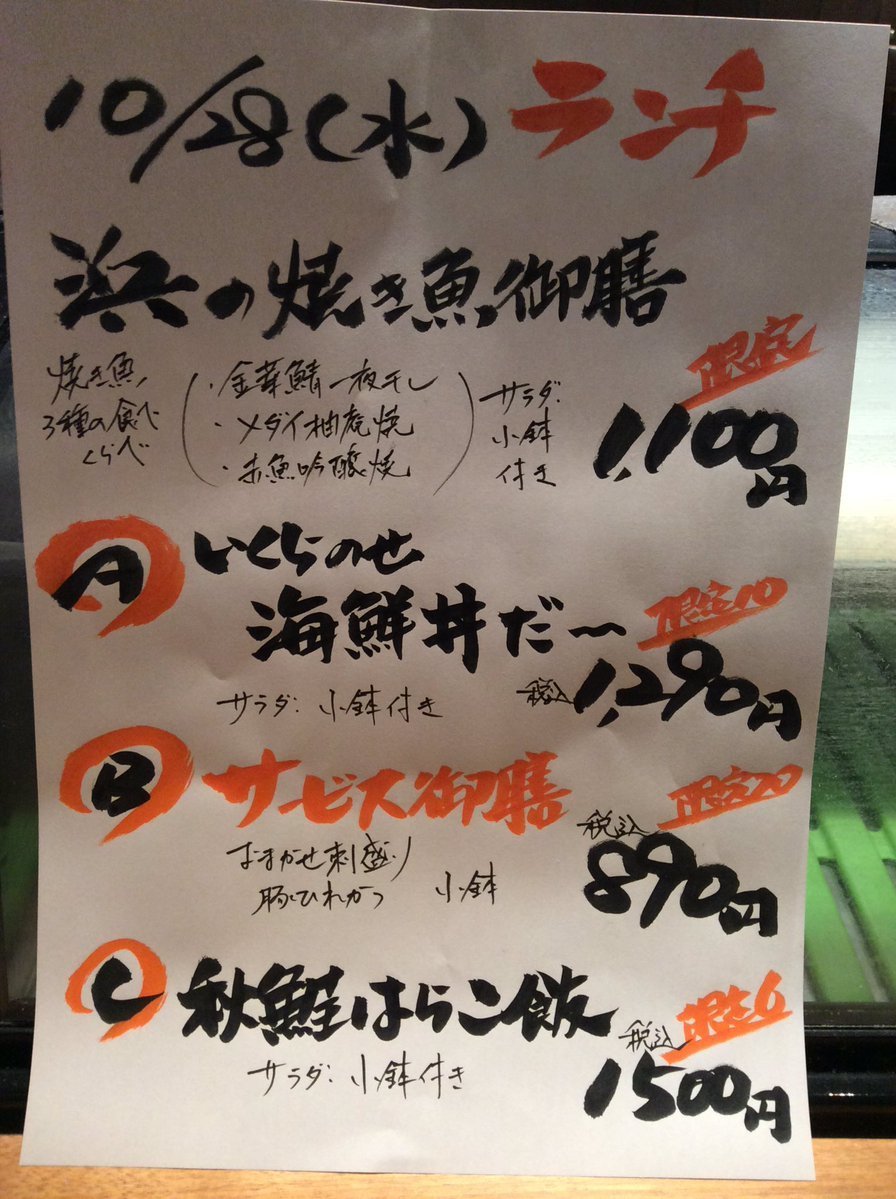 10/28(水)ランチ
浜の焼き魚御膳
限定
焼き魚
3種の食べ
くらべ
・金華鯖一夜干し
・メダイ柚庵焼
・赤魚吟醸焼
サラダ・
小鉢
付き
1,100円
A いくらのせ
海鮮丼だ〜
限定10
サラダ・小鉢付き
税込 1,290円
B サービス御膳
限定20
おまかせ刺盛り
豚ひれかつ 小鉢
税込
890円
C 秋鮭はらこ飯
限定6
サラダ・小鉢付き
税込
1500円